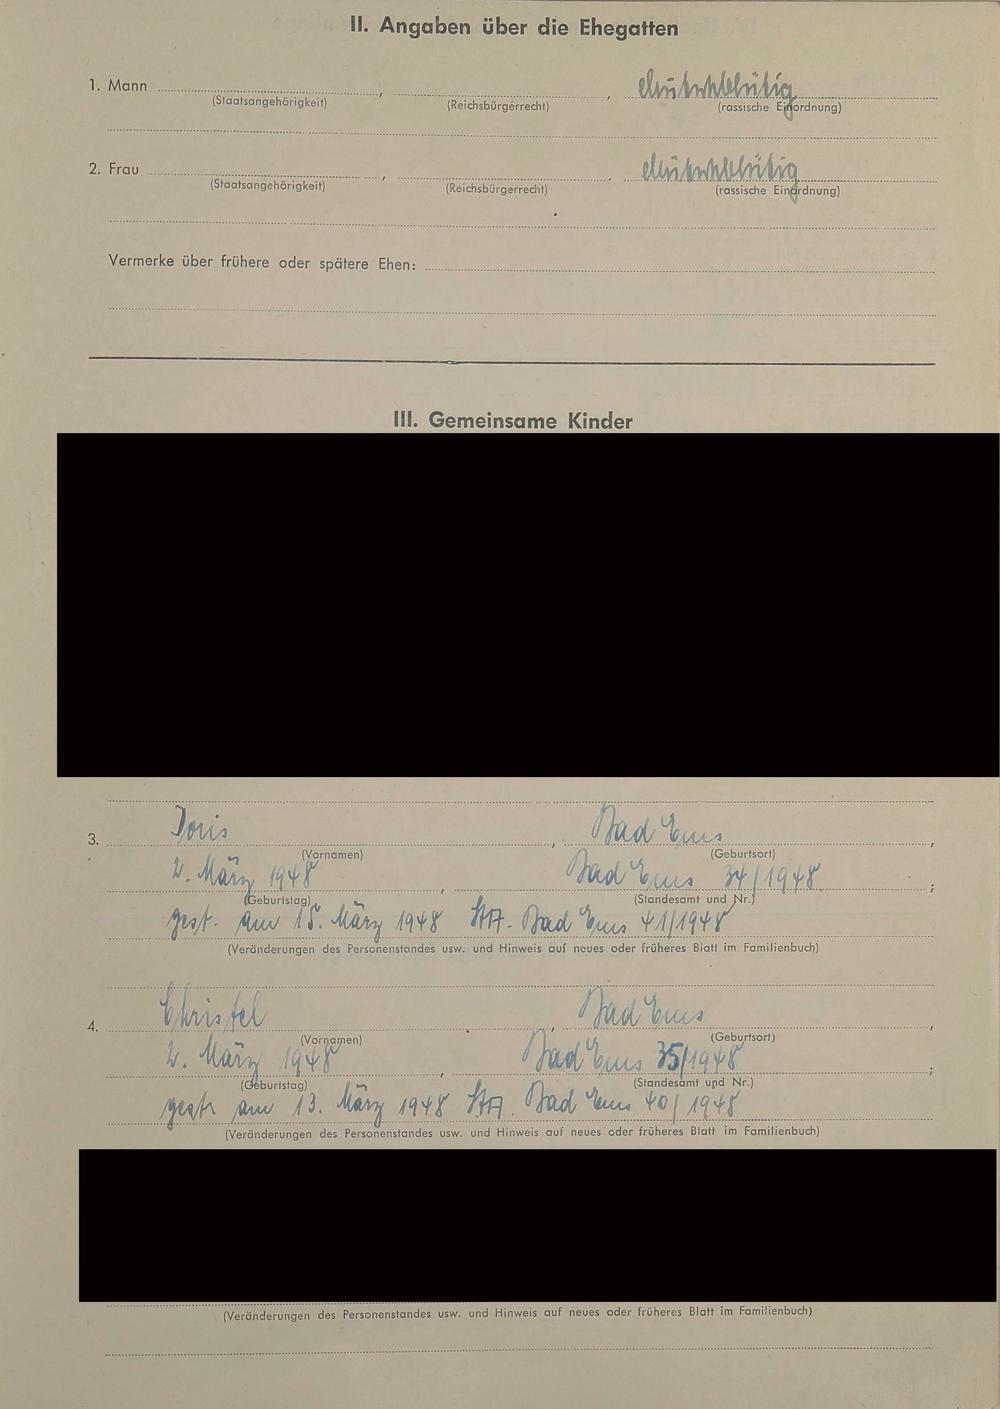 II. Angaben über die Ehegatten
1. Mann , , deutschblütig
(Staatsangehörigkeit) (Reichsbürgerrecht) (rassische Einordnung)
2. Frau , , deutschblütig
(Staatsangehörigkeit) (Reichsbürgerrecht) (rassische Einordnung)
Vermerke über frühere oder spätere Ehen:
III. Gemeinsame Kinder
3. Doris , Bad Ems ,
(Vornamen) (Geburtsort)
2. März 1948 , Bad Ems 34/1948 ;
(Geburtstag) (Standesamt und Nr.)
gest. am 15. März 1948 StA. Bad Ems 41/1948
(Veränderungen des Personenstandes usw. und Hinweis auf neues oder früheres Blatt im Familienbuch)
4. Christel , Bad Ems ,
(Vornamen) (Geburtsort)
2. März 1948 , Bad Ems 35/1948 ;
(Geburtstag) (Standesamt und Nr.)
gest. am 13. März 1948 StA. Bad Ems 40/1948
(Veränderungen des Personenstandes usw. und Hinweis auf neues oder früheres Blatt im Familienbuch)
(Veränderungen des Personenstandes usw. und Hinweis auf neues oder früheres Blatt im Familienbuch)